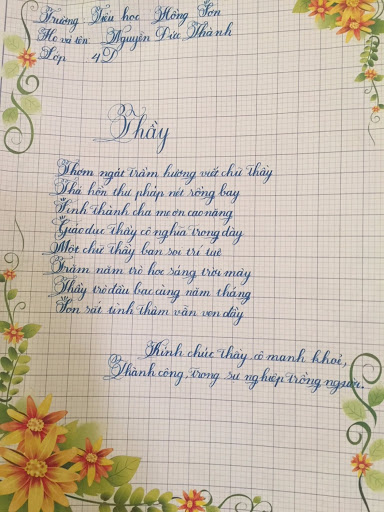 Trường Tiểu học Hồng Sơn
Họ và tên Nguyễn Đức Thành
Lớp 4D
Thầy
Thơm ngát trầm hương viết chữ thầy
Thả hồn thư pháp nét rồng bay
Tình thành cha mẹ ơn cao nặng
Giáo dục thầy cô nghĩa trọng dày
Một chữ thầy ban soi trí tuệ
Trăm năm trò học sáng trời mây
Thầy trò đầu bạc cùng năm tháng
Son sắt tình thâm vẫn vẹn đầy
Kính chúc thầy, cô mạnh khoẻ,
Thành công, trong sự nghiệp trồng người.